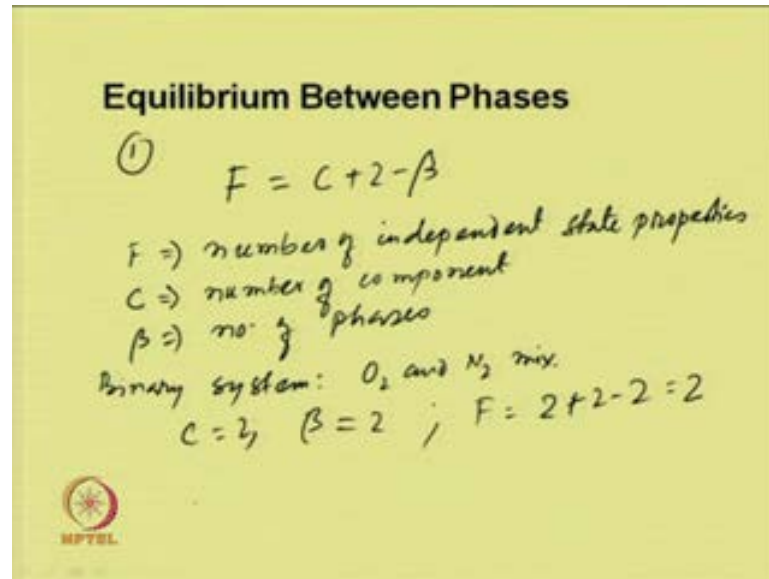 Equilibrium Between Phases
①
F = C + 2 - β
F ⇒ number of independent state properties
C ⇒ number of component
β ⇒ no. of phases
Binary system: O₂ and N₂ mix.
C = 2, β = 2 ; F = 2 + 2 - 2 = 2
NPTEL